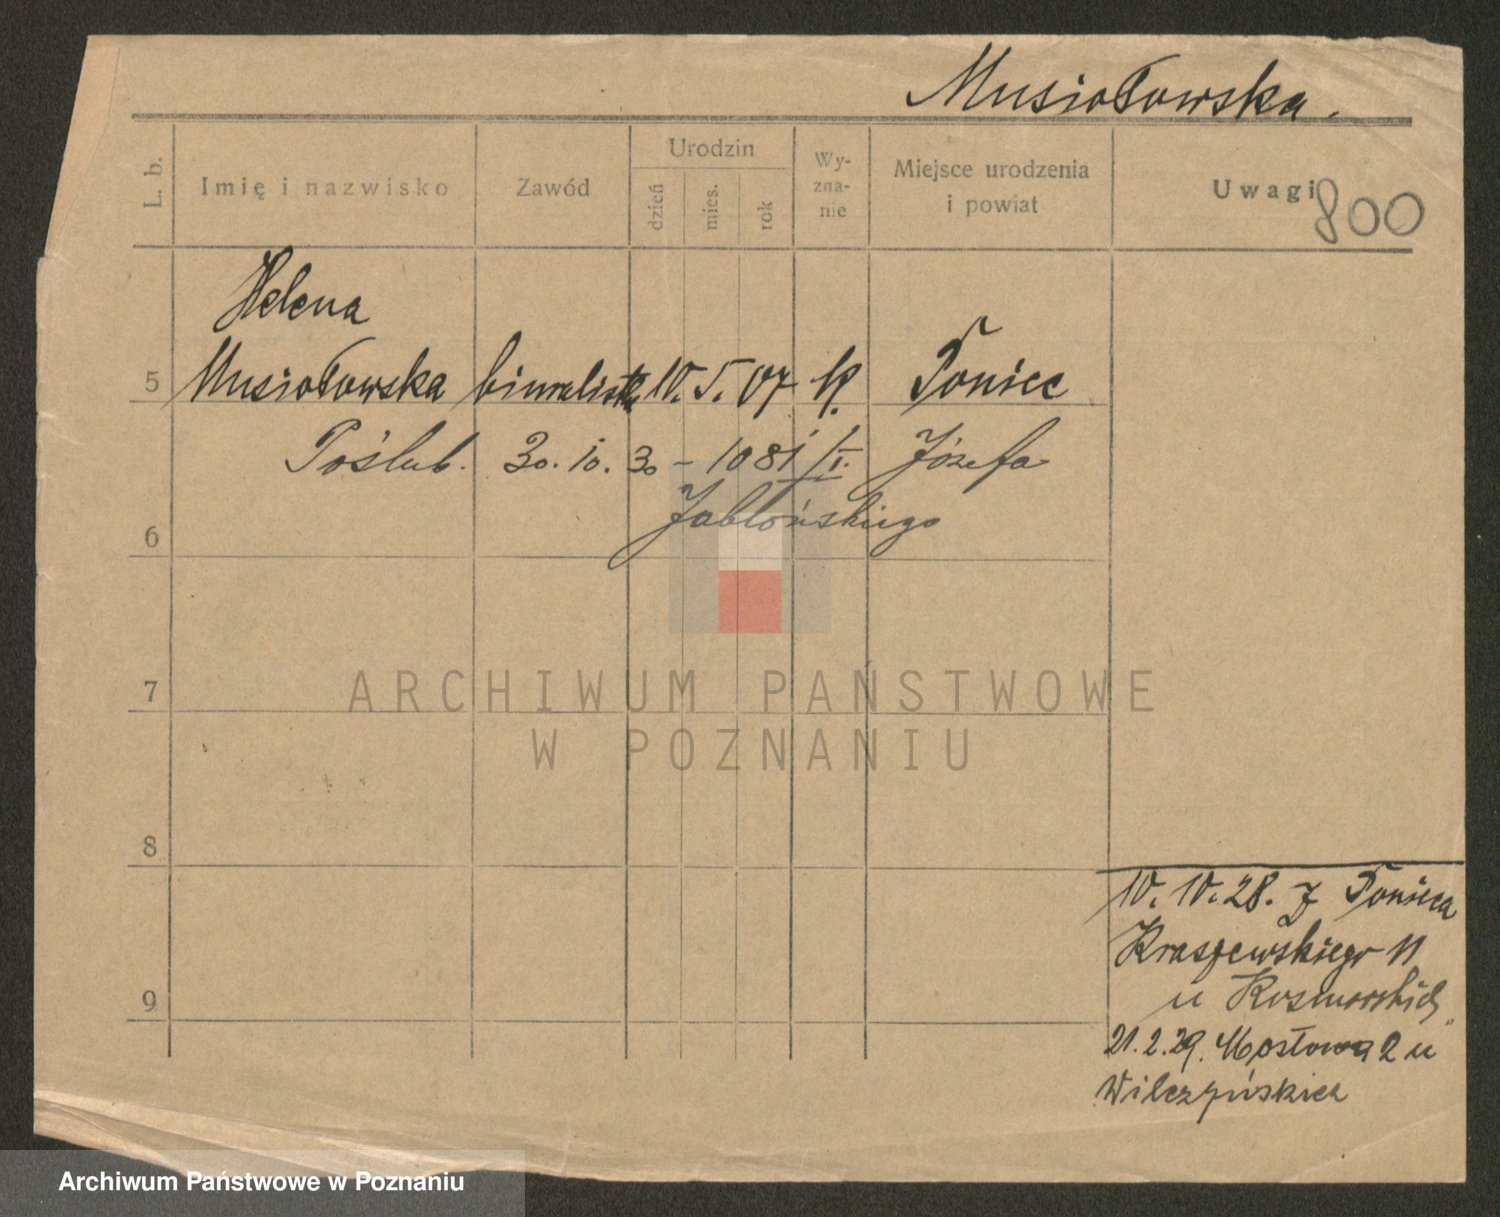 Musiołowska.
L. b.
Imię i nazwisko
Zawód
Urodzin
dzień
mies.
rok
Wy-
zna-
nie
Miejsce urodzenia
i powiat
Uwagi
800
Helena
5 Musiołowska biuralistka 10. 5. 07 Poniec
Poślub. 30. 10. 30 – 1081/I. Józefa
Jabłońskiego
6
7
ARCHIWUM PAŃSTWOWE
W POZNANIU
8
10. 10. 28. z Ponieca
Kraszewskiego 11
9
u
21. 2. 29. Mostowa 2 u
Wilczyńskich
Archiwum Państwowe w Poznaniu